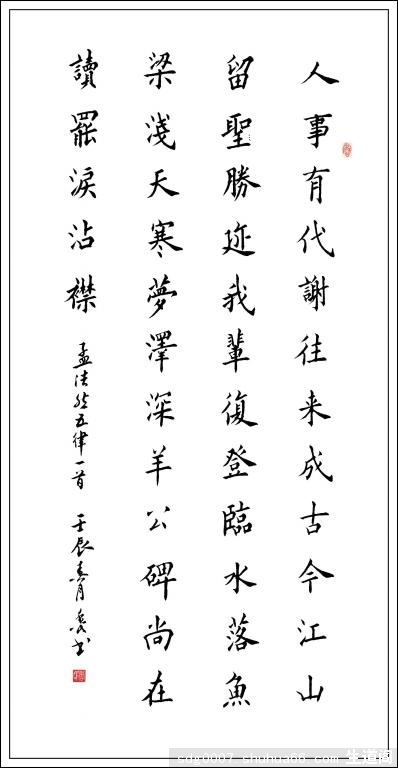 人事有代謝往来成古今江山
留聖勝迹我輩復登臨水落魚
梁淺天寒夢澤深羊公碑尚在
讀罷淚沾襟 孟浩然五律一首 壬辰春月 書
shuhua66.com